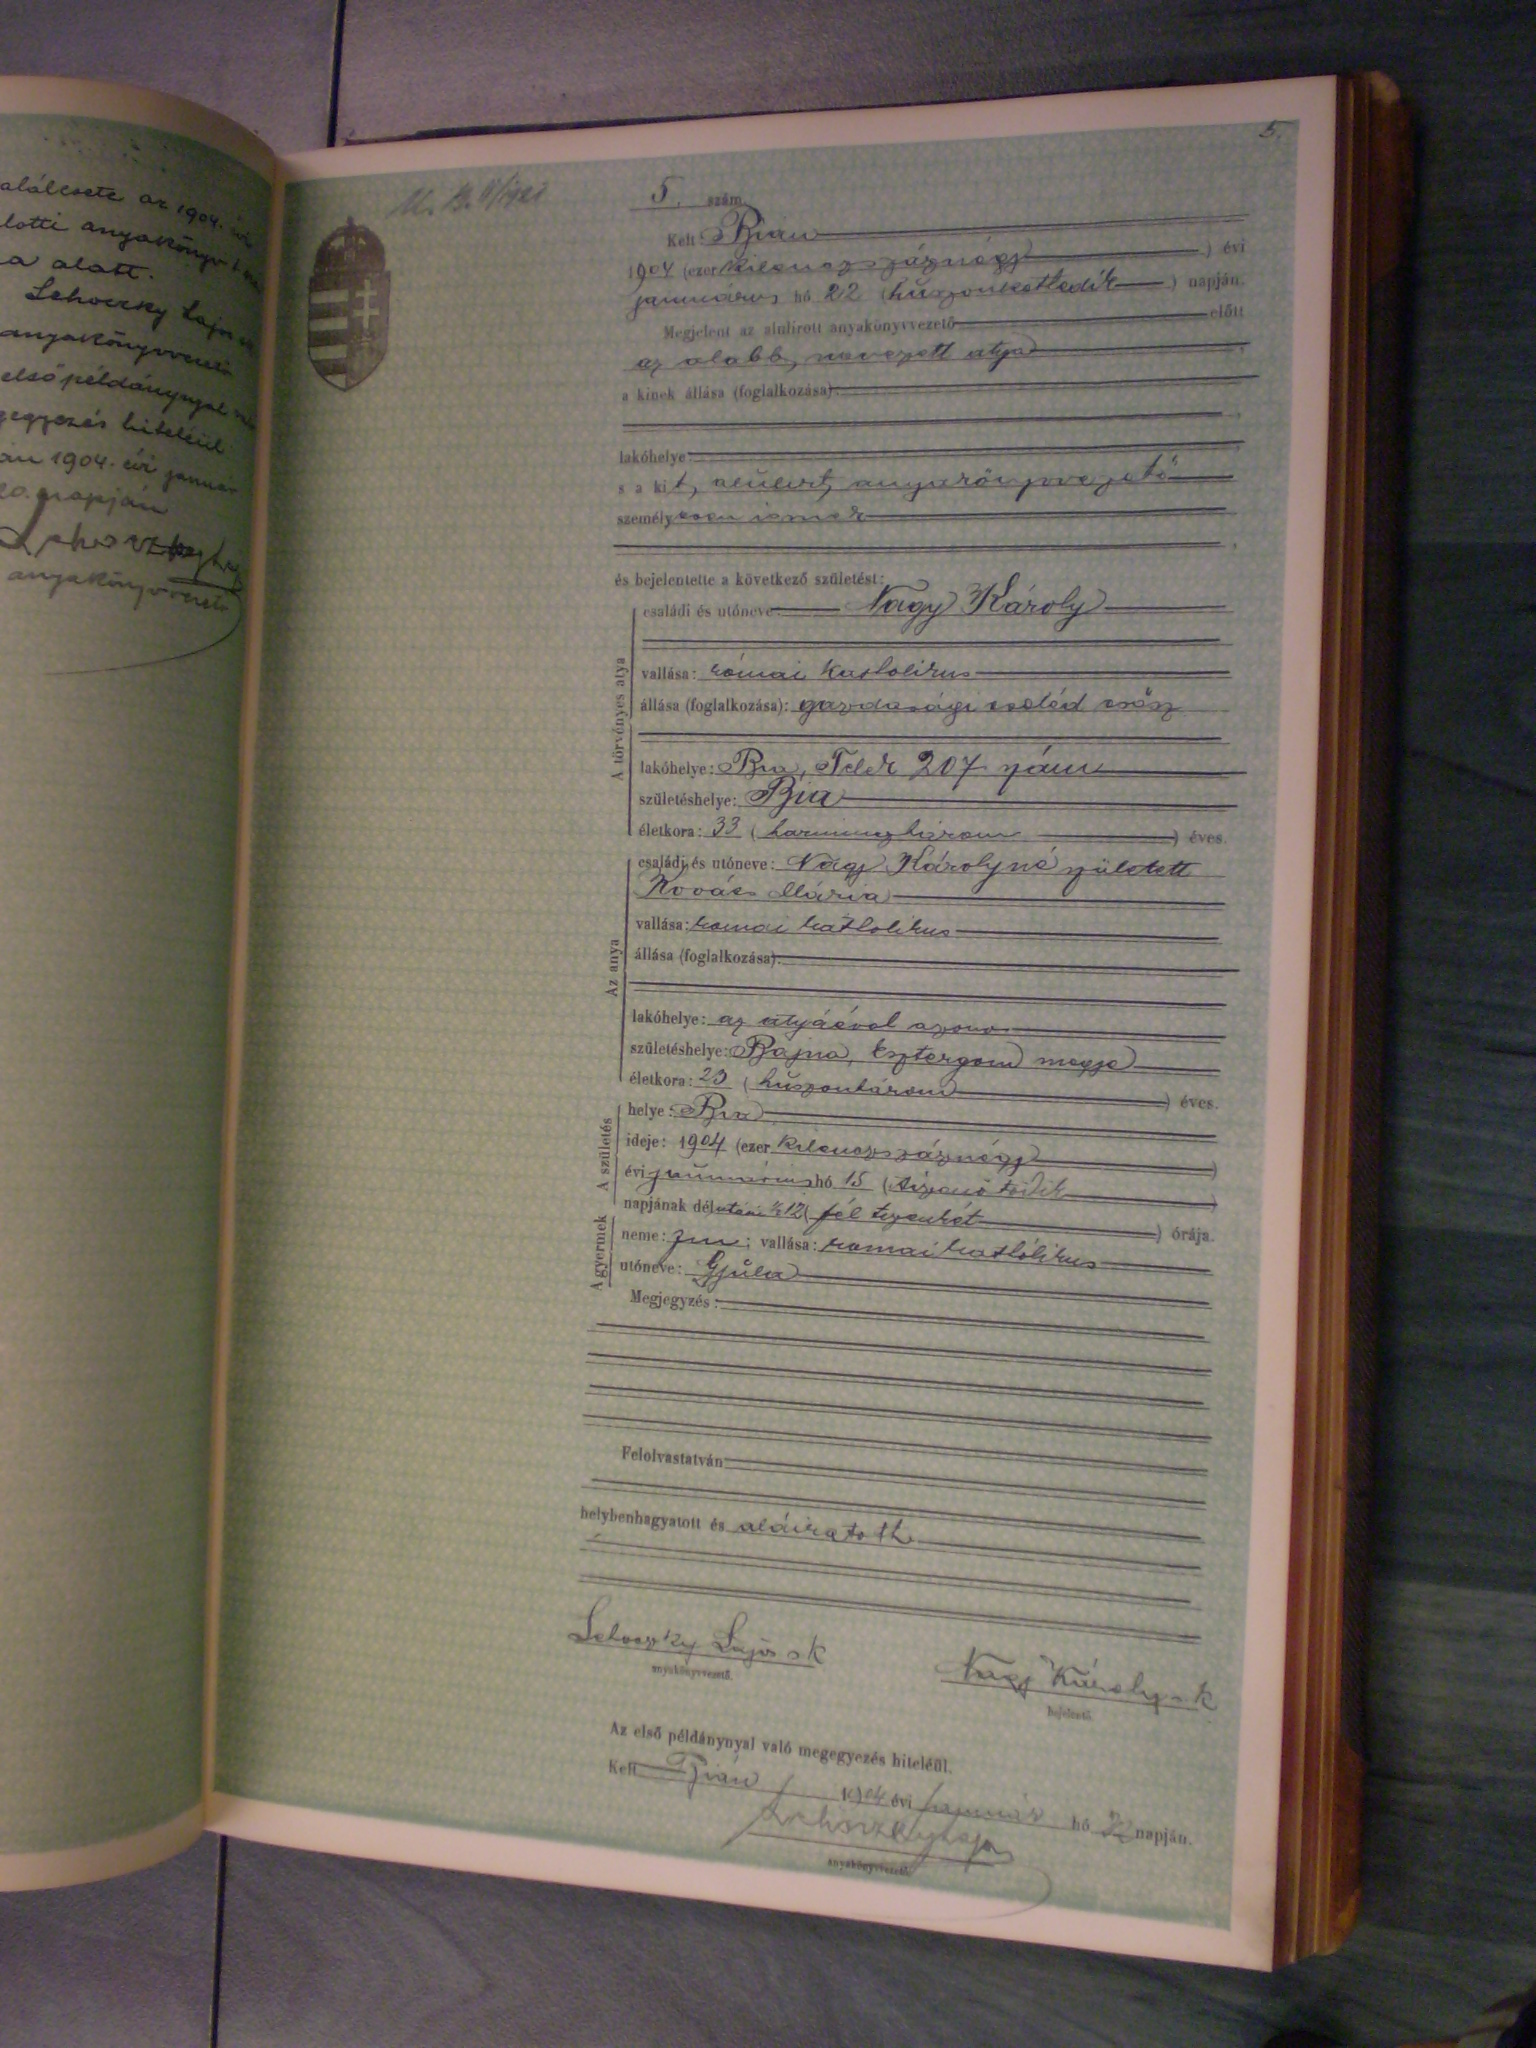 alálesete az 1904. évi
lotti anyakönyv 1
a alatt.
Lehoczky Lajos
anyakönyvvezető
első példánynyal való
egyezés hiteléül
án 1904. évi január
20. napján
Lehoczky
anyakönyvvezető
5.
5. szám.
Kelt Bián
1904 (ezer kilenczszáznégy) évi
januárius hó 22 (huszonkettedik) napján.
Megjelent az alulírott anyakönyvvezető előtt
az alább nevezett atya
a kinek állása (foglalkozása):
lakóhelye:
s a kit, alulirt, anyakönyvvezető
személyesen ismer
és bejelentette a következő születést:
A törvényes atya
családi és utóneve Nagy Károly
vallása: római katholikus
állása (foglalkozása): gazdasági cseléd csősz
lakóhelye: Bia, Telek 207 szám
születéshelye: Bia
életkora: 33 (harminczhárom) éves.
Az anya
családi és utóneve: Nagy Károlyné született
Kovács Mária
vallása: romai katholikus
állása (foglalkozása):
lakóhelye: az atyáéval azonos
születéshelye: Bajna, Esztergom megye
életkora: 23 (huszonhárom) éves.
A születés
helye: Bia
ideje: 1904 (ezer kilenczszáznégy)
évi januárius hó 15 (tizenötödik)
napjának délután ½12 (fél tizenkét) órája.
A gyermek
neme: fiu; vallása: romai katholikus
utóneve: Gyula
Megjegyzés:
Felolvastatván
helybenhagyatott és aláiratott
Lehoczky Lajos sk
anyakönyvvezető.
Nagy Károly sk
bejelentő.
Az első példánynyal való megegyezés hiteléül.
Kelt Bián 1904 évi január hó 22 napján.
Lehoczky Lajos
anyakönyvvezető.